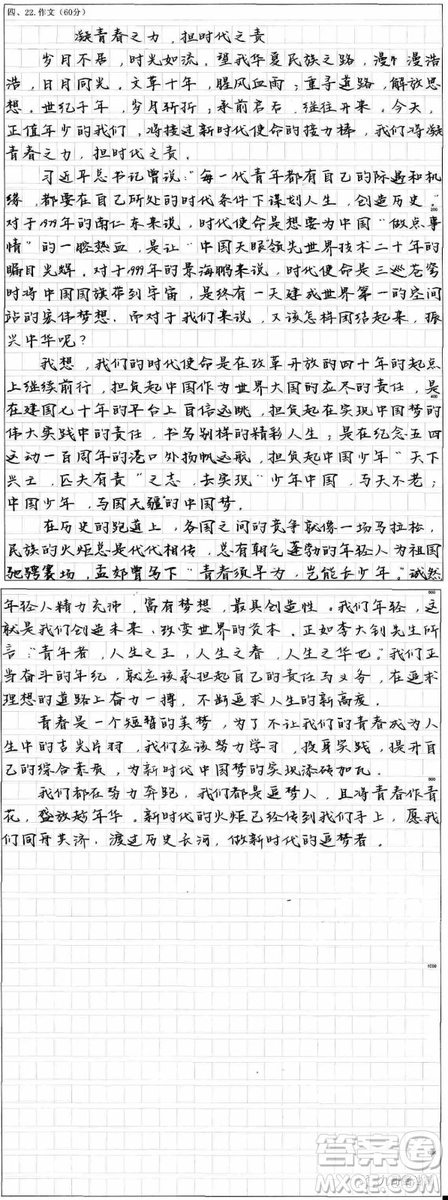 四、22.作文（60分）
凝青春之力，担时代之责
岁月不居，时光如流，望我华夏民族之路，漫漫浩
浩，日月同光，文革十年，腥风血雨；重寻道路，解放思
想，世纪千年，岁月新折；承前启右，继往开来，今天，
正值年少的我们，将接过新时代使命的接力棒，我们将凝
青春之力，担时代之责。
习近平总书记曾说：“每一代青年都有自己的际遇和机
缘，都要在自己所处的时代条件下谋划人生，创造历史。”
对于1999年的南仁东来说，时代使命是想要为中国“做点事
情”的一腔热血，是让“中国天眼领先世界技术二十年的
瞩目光辉，对于1999年的景海鹏来说，时代使命是三巡苍穹
时将中国国旗带到宇宙，是终有一天建成世界第一的空间
站的宏伟梦想。而对于我们来说，又该怎样团结起来，振
兴中华呢？
我想，我们的时代使命是在改革开放的四十年的起点
上继续前行，担负起中国作为世界大国的应尽的责任，是
在建国七十年的平台上自信远眺，担负起在实现中国梦的
伟大实践中的责任，书写别样的精彩人生；是在纪念五四
运动一百周年的港口外扬帆远航，担负起中国少年“天下
兴亡，匹夫有责”之志，去实现“少年中国，与天不老；
中国少年，与国无疆”的中国梦。
在历史的跑道上，各国之间的竞争就像一场马拉松，
民族的火炬总是代代相传，总有朝气蓬勃的年轻人为祖国
驰骋赛场，孟郊曾写下“青春须早为，岂能长少年。”诚然
年轻人精力充沛，富有梦想，最具创造性。我们年轻，这
就是我们创造未来、改变世界的资本。正如李大钊先生所
言：“青年者，人生之王，人生之春，人生之华也。”我们正
当奋斗的年纪，就应该承担起自己的责任与义务，在追求
理想的道路上奋力一搏，不断追求人生的新高度。
青春是一个短暂的美梦，为了不让我们的青春成为人
生中的吉光片羽，我们应该努力学习，投身实践，提升自
己的综合素质，为新时代中国梦的实现添砖加瓦。
我们都在努力奔跑，我们都是追梦人，且将青春作青
花，盛放趁年华。新时代的火炬已经传到我们手上，愿我
们同舟共济，渡过历史长河，做新时代的追梦者。
200
400
600
800
1000
答案圈
MXQE.COM